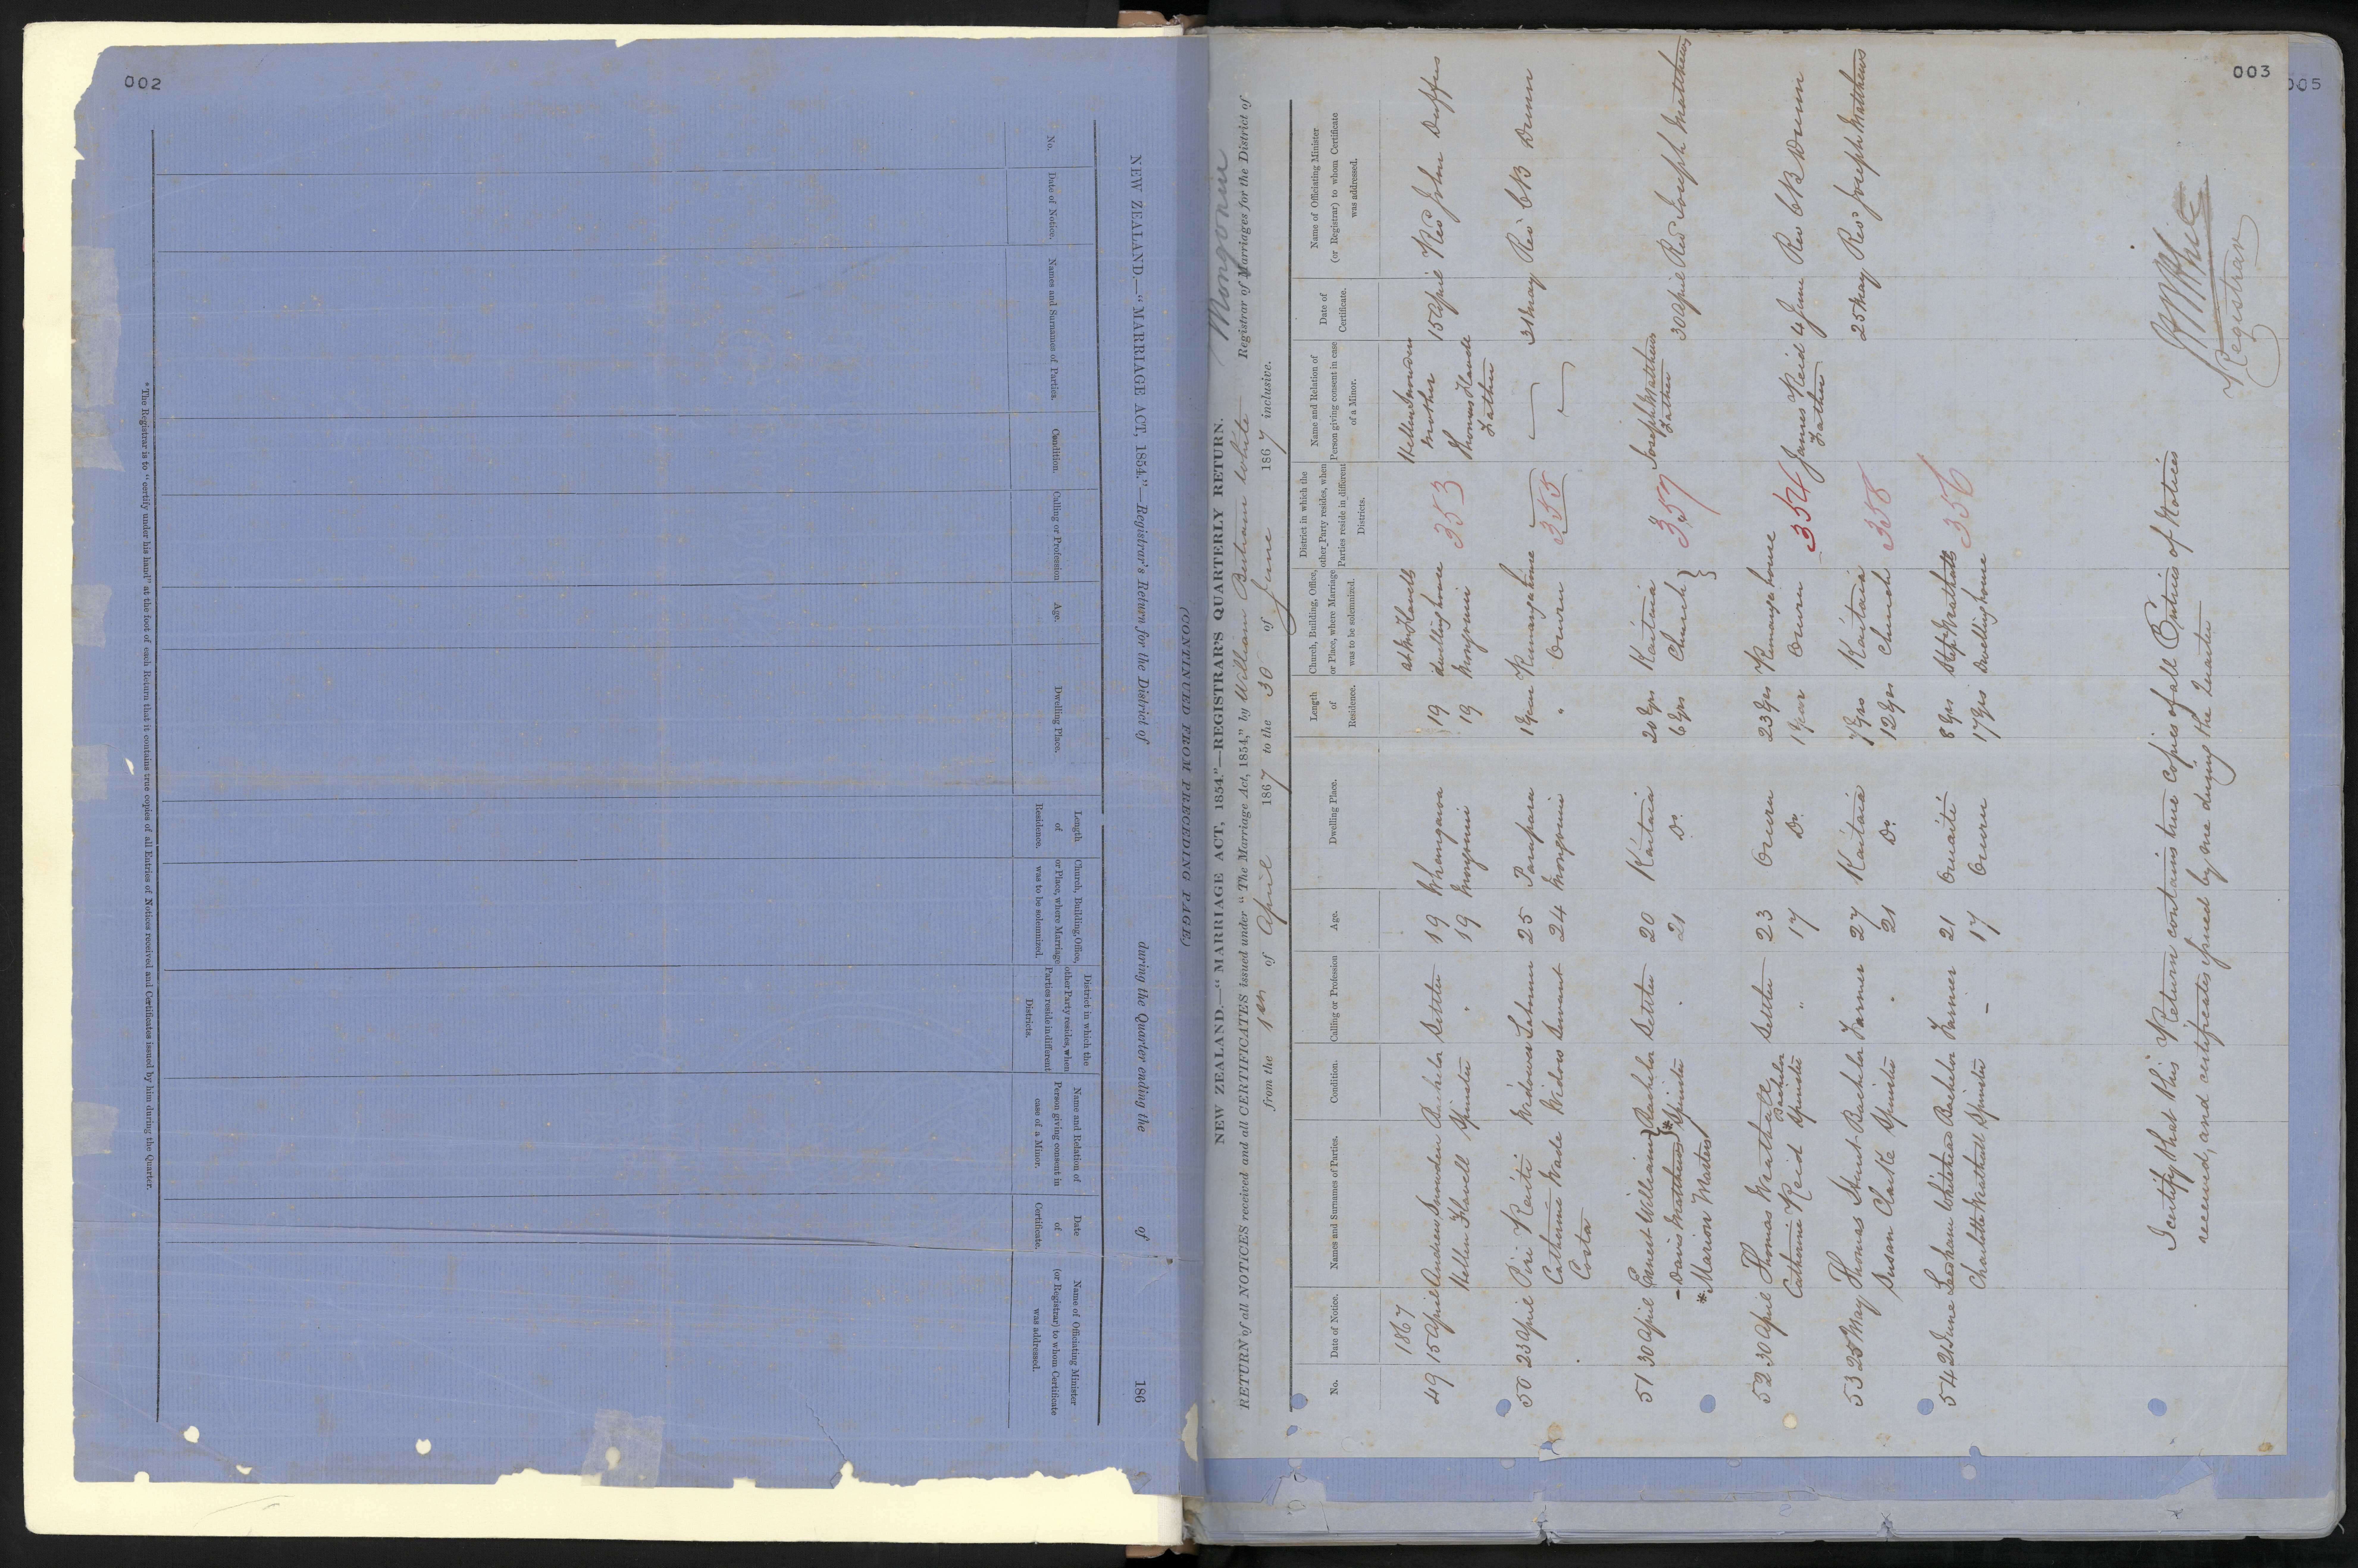 002
NEW ZEALAND.—"MARRIAGE ACT, 1854."—Registrar's Return for the District of during the Quarter ending the of 186
No.
Date of Notice.
Names and Surnames of Parties.
Condition.
Calling or Profession
Age.
Dwelling Place.
Length
of
Residence.
Church, Building, Office,
or Place, where Marriage
was to be solemnized.
District in which the
other Party resides, when
Parties reside in different
Districts.
Name and Relation of
Person giving consent in
case of a Minor.
Date
of
Certificate.
Name of Officiating Minister
(or Registrar) to whom Certificate
was addressed.
*The Registrar is to "certify under his hand" at the foot of each Return that it contains true copies of all Entries of Notices received and Certificates issued by him during the Quarter.
(CONTINUED FROM PRECEDING PAGE.)
003
005
NEW ZEALAND.—"MARRIAGE ACT, 1854."—REGISTRAR'S QUARTERLY RETURN.
Mongonui
RETURN of all NOTICES received and all CERTIFICATES issued under "The Marriage Act, 1854," by William Bertram White Registrar of Marriages for the District of
from the 1st of April 1867 to the 30 of June 1867 inclusive.
No.
Date of Notice.
Names and Surnames of Parties.
Condition.
Calling or Profession
Age.
Dwelling Place.
Length
of
Residence.
Church, Building, Office,
or Place, where Marriage
was to be solemnized.
District in which the
other Party resides, when
Parties reside in different
Districts.
Name and Relation of
Person giving consent in case
of a Minor.
Date of
Certificate.
Name of Officiating Minister
(or Registrar) to whom Certificate
was addressed.
1867
49 15 April Andrew Snowden Bachelor Settler 19 Whangaroa 19 at Mr Flavells dwelling house Mongonui 353 Hellen Snowden mother 15 April Rev John Duffus
Hellen Flavell Spinster " 19 Mongonui 19 Thomas Flavell Father
50 23 April Piri Raiti Widower Labourer 25 Parapara 1 year Rumanga house Oruru 355 31 May Rev CB Dunn
Catherine Wade Costa Widow Servant 24 Mongonui "
51 30 April Ernest Williams Bachelor Settler 20 Kaitaia 20 yrs Kaitaia Church 357 Joseph Matthews Father 30 April Rev Joseph Matthews
Davis Matthews * Spinster " 21 Do 6 yrs
* Marion Masters
52 30 April Thomas Wrathall Bachelor Settler 23 Oruru 23 yrs Rumanga house Oruru 354 James Reid Father 4 June Rev CB Dunn
Catherine Reid Spinster " 17 Do 1 year
53 25 May Thomas Stunt Bachelor Farmer 27 Kaitaia 7 yrs Kaitaia Church 358 25 May Rev Joseph Matthews
Susan Clarke Spinster " 21 Do 12 yrs
54 21 June Whitehead Bachelor Farmer 21 8 yrs Wrathalls Dwelling house 356
Charlotte Wrathall Spinster – 17 Oruru 17 yrs
I certify that this Return contains true copies of all Entries of Notices
received, and certificates issued by me during the Quarter
WBWhite
Registrar